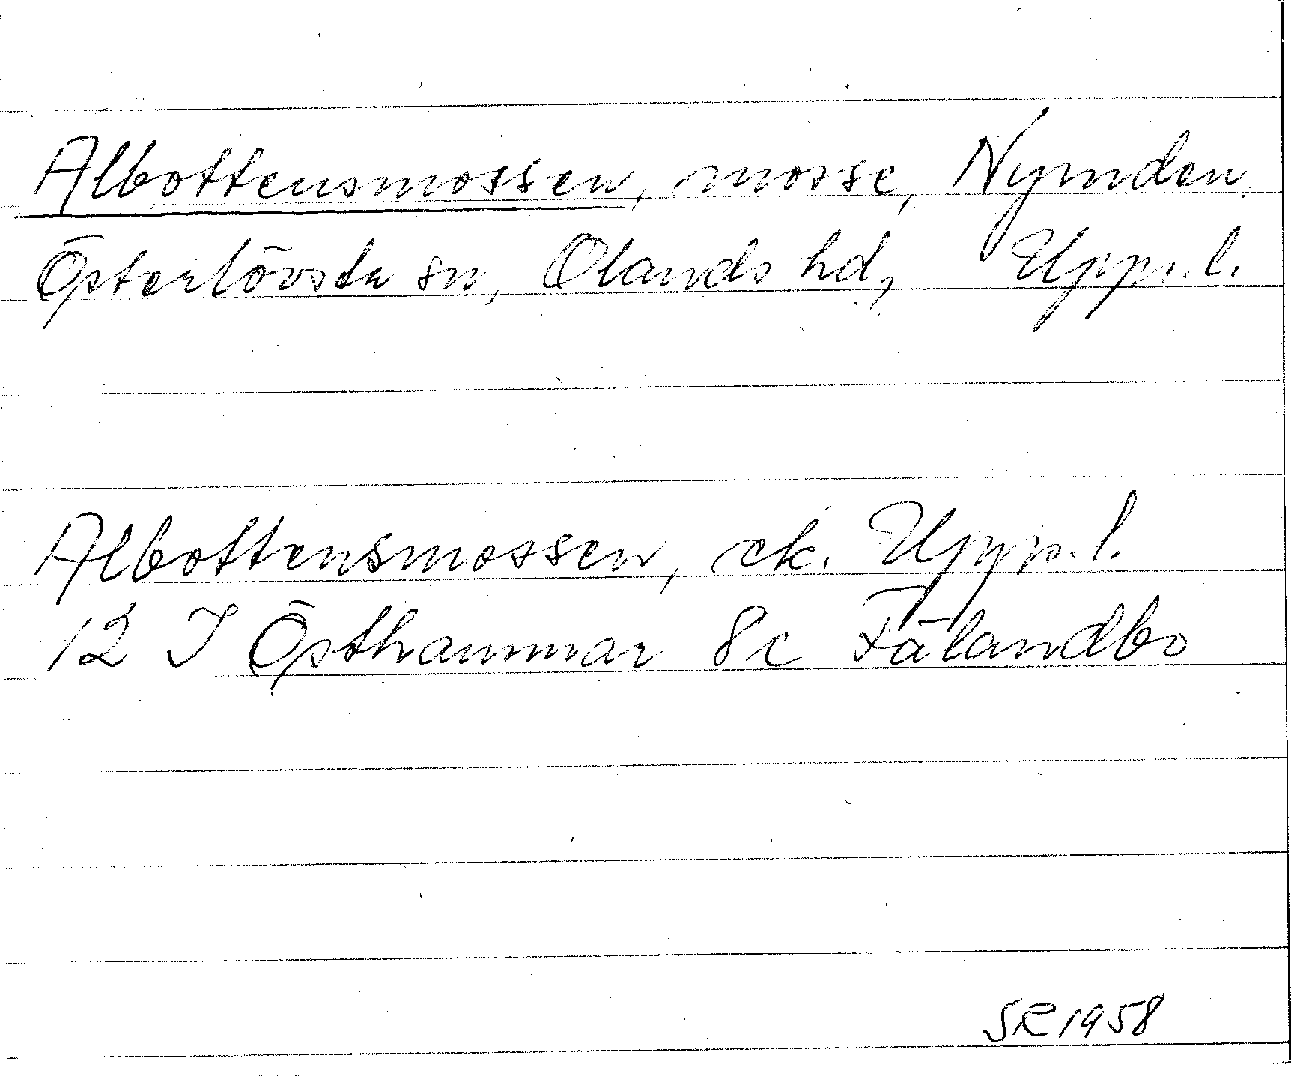 Albottensmossen, mosse, Nymden
Österlövsta sn, Olands hd, Uppl.
Albottensmossen, ek. Uppl.
12 I Östhammar 8c Fälandbo
SR 1958